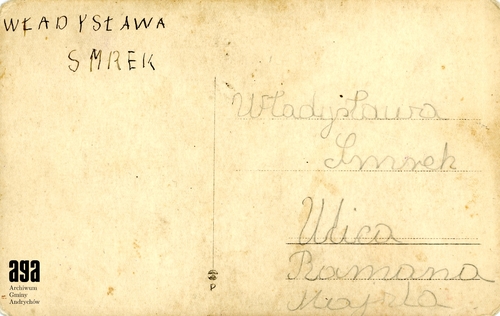 WŁADYSŁAWA
SMREK
Władysława
Smrek
Ulica
Ramana
P
aga
Archiwum
Gminy
Andrychów